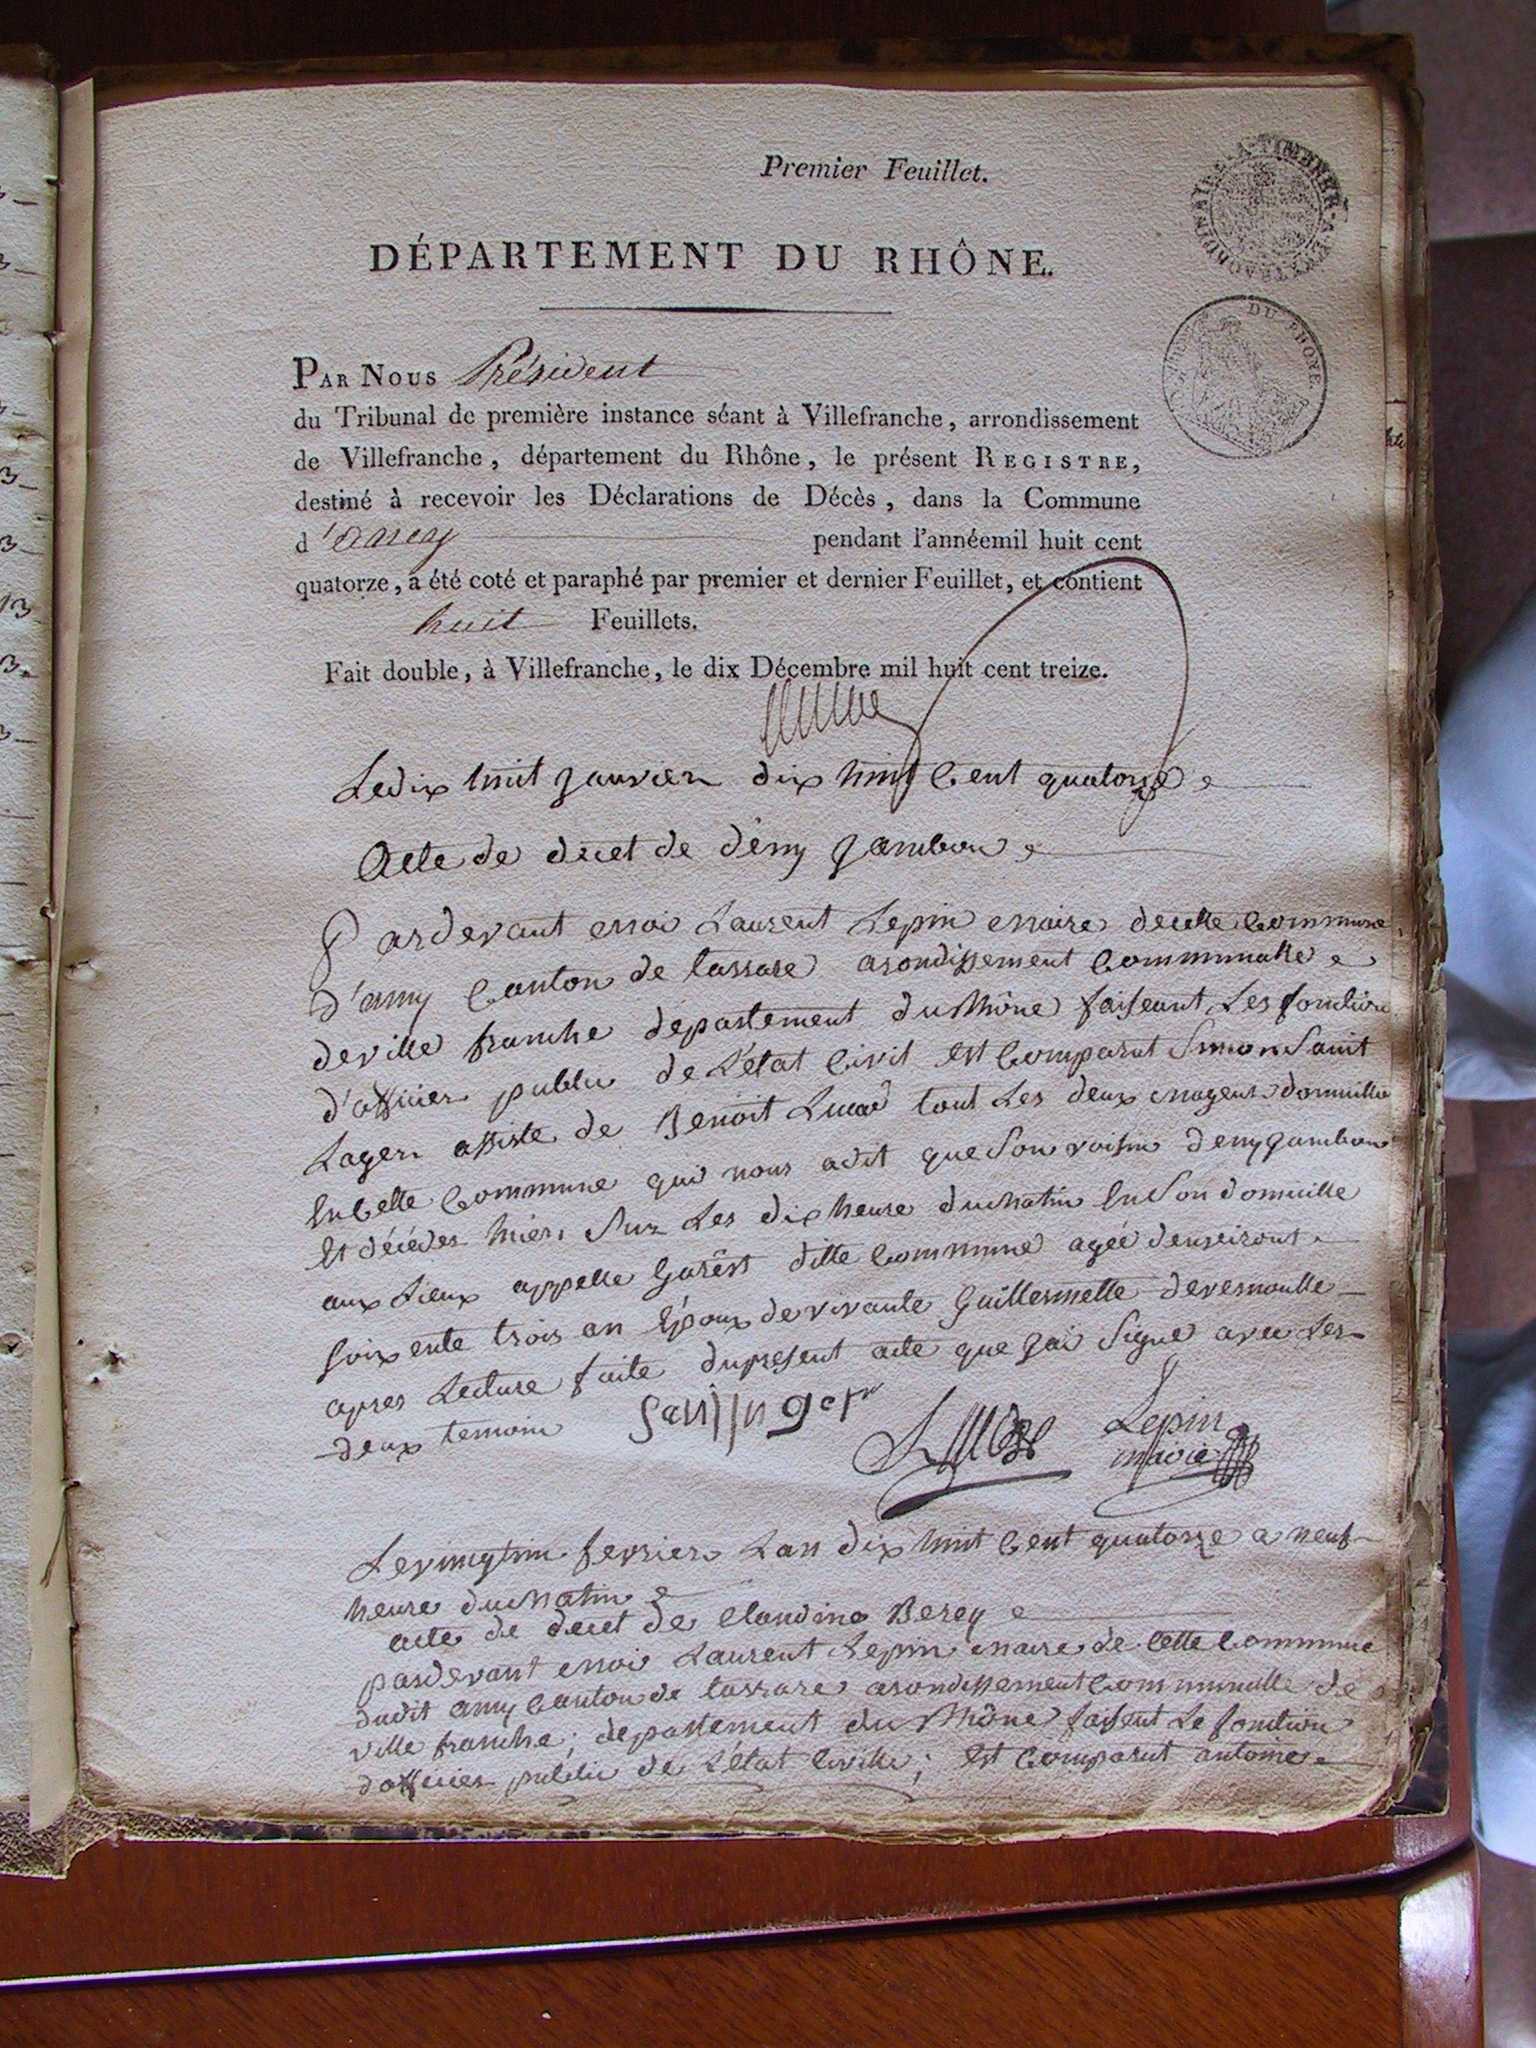 Premier Feuillet.
EXTRAORDINAIRE A TIMBRER A L'
DU RHONE.
DÉPARTEMENT DU RHÔNE.
PAR NOUS Président
du Tribunal de première instance séant à Villefranche, arrondissement
de Villefranche, département du Rhône, le présent REGISTRE,
destiné à recevoir les Déclarations de Décès, dans la Commune
d'ancy pendant l'annéemil huit cent
quatorze, a été coté et paraphé par premier et dernier Feuillet, et contient
huit Feuillets.
Fait double, à Villefranche, le dix Décembre mil huit cent treize.
Ledix huit janvier dix huit Cent quatorze
Acte de decet de dény jambon
Pardevant moi Laurent Lepin maire decette Commune
d'anny Canton de tarrare arondissement Communalle
deville franche departement duRhône faiseant Les fonction
d'officier public de L'état Civil Est Comparut Simon Saint
Lager assiste de Benoit Lucas tout Les deux mageur domicille
EnCette Commune qui nous adit queSon voisin deny jambon
Et décédes hier Sur Les dix heure duMatin EnSon domicille
aux Lieux appelle ditte Commune agée denviront
soixente trois an Epoux devivante Guillermette devernoille
apres Lecture faite dupresent acte que jai Signe avec Les
deux temoin
Lepin
maire
Levingtun fevrier Lan dix huit Cent quatorze a neuf
heure duMatin
acte de decet de Claudine Berey
pardevant moi Laurent Lepin maire de Cette Commune
dudit anny Canton de tarrare arondissement Communelle de
ville franche, departement du Rhône faisent Le fonction
dofficier public de L'état Civille; Est Comparut antoine